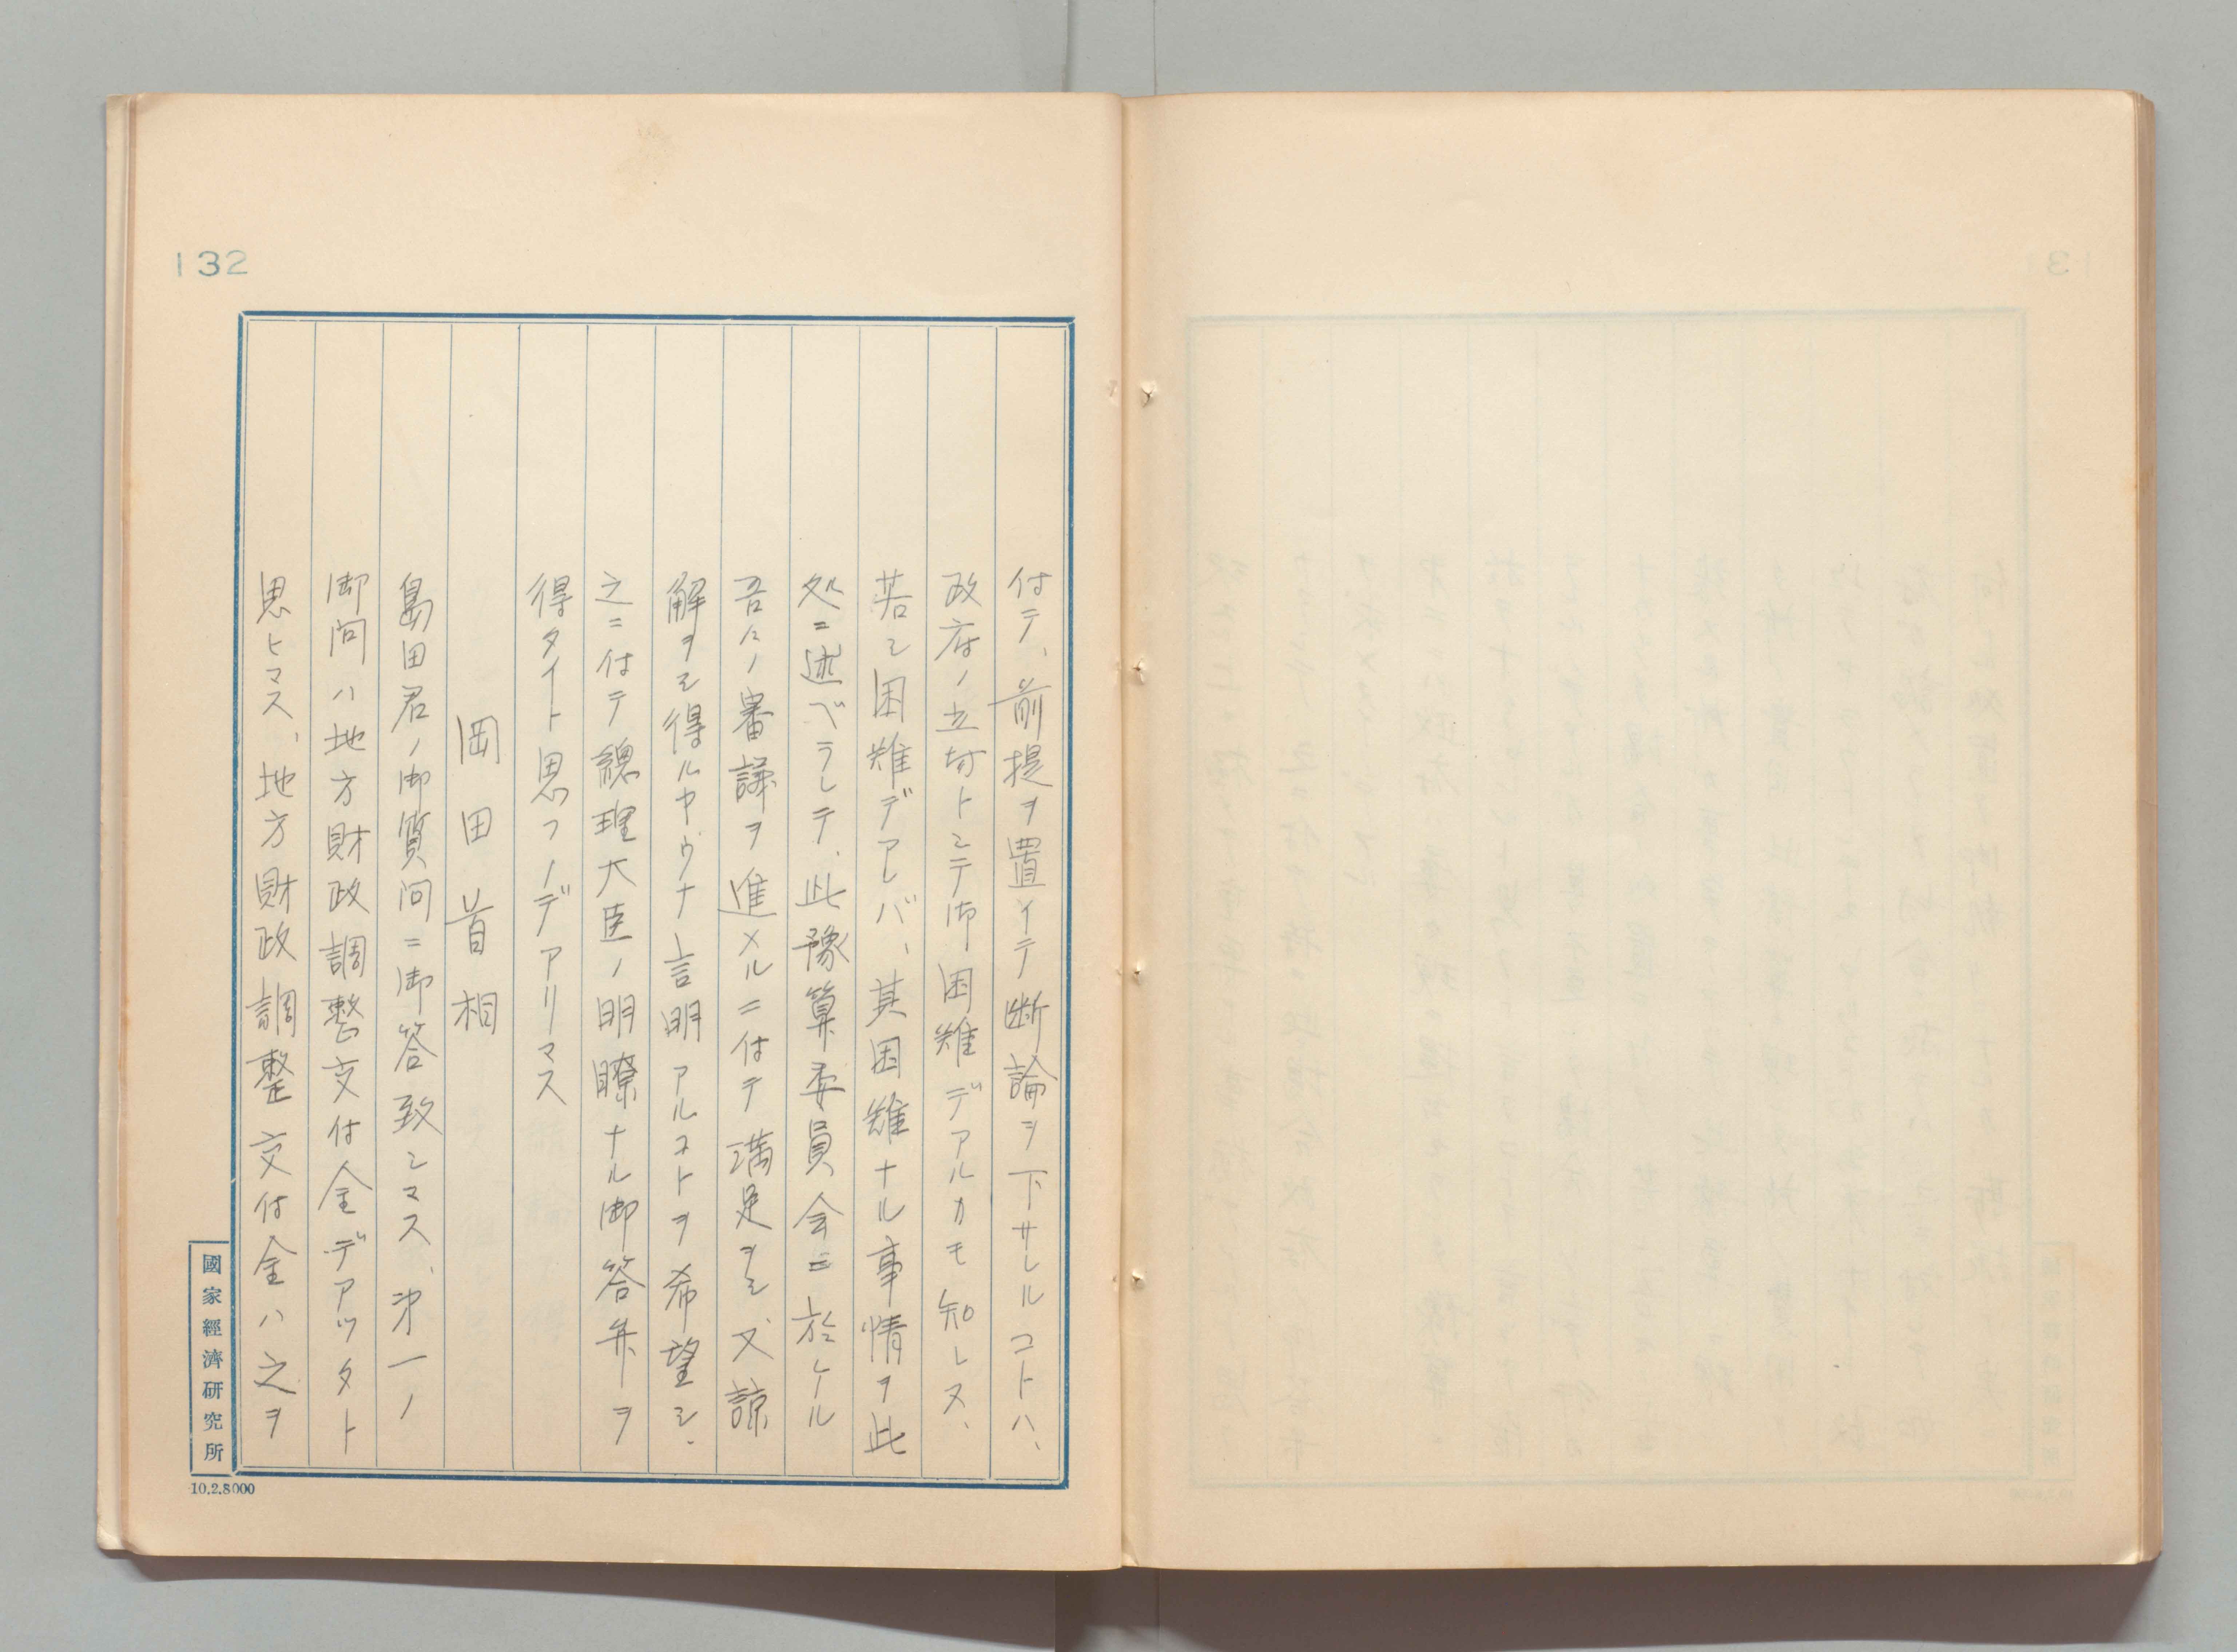 132
付テ、前提ヲ置イテ断論ヲ下サレルコトハ、
政府ノ立場トシテ御困難デアルカモ知レヌ、
若シ困難デアレバ、其困難ナル事情ヲ此
処ニ述ベラレテ、此豫算委員会ニ於ケル
吾々ノ審議ヲ進メルニ付テ満足ヲシ、又諒
解ヲシ得ルヤウナ言明アルコトヲ希望シ、
之ニ付テ總理大臣ノ明瞭ナル御答弁ヲ
得タイト思フノデアリマス
岡田首相
島田君ノ御質問ニ御答致シマス、才一ノ
御問ハ地方財政調整交付金デアツタト
思ヒマス、地方財政調整交付金ハ之ヲ
國家經濟研究所
10.2.8000